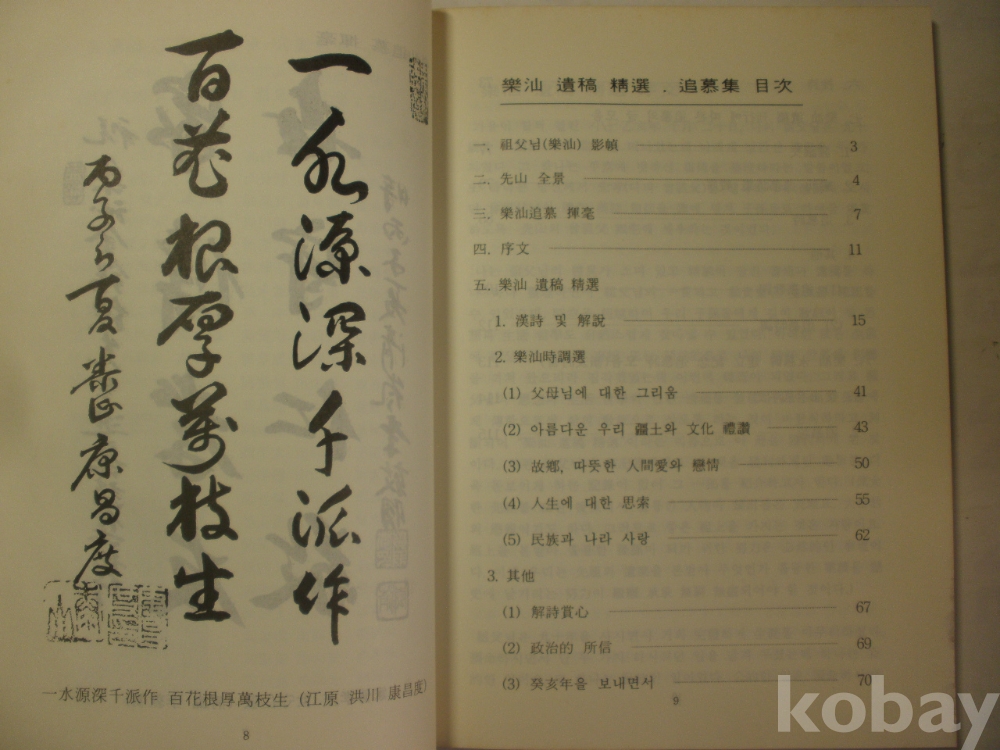 一水源深千派作
百花根厚萬枝生
丙子之夏 康昌度
一水源深千派作 百花根厚萬枝生 (江原 洪川 康昌度)
8
樂汕 遺稿 精選 . 追慕集 目次
一. 祖父님(樂汕) 影幀 3
二. 先山 全景 4
三. 樂汕追慕 揮毫 7
四. 序文 11
五. 樂汕 遺稿 精選
1. 漢詩 및 解說 15
2. 樂汕時調選
(1) 父母님에 대한 그리움 41
(2) 아름다운 우리 疆土와 文化 禮讚 43
(3) 故鄕, 따뜻한 人間愛와 戀情 50
(4) 人生에 대한 思索 55
(5) 民族과 나라 사랑 62
3. 其他
(1) 解詩賞心 67
(2) 政治的 所信 69
(3) 癸亥年을 보내면서 70
9
kobay